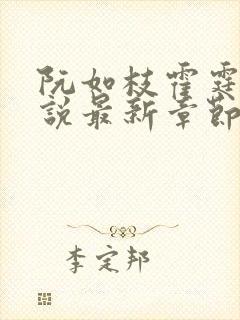 阮如枝霍霆
說最新章節
李定邦